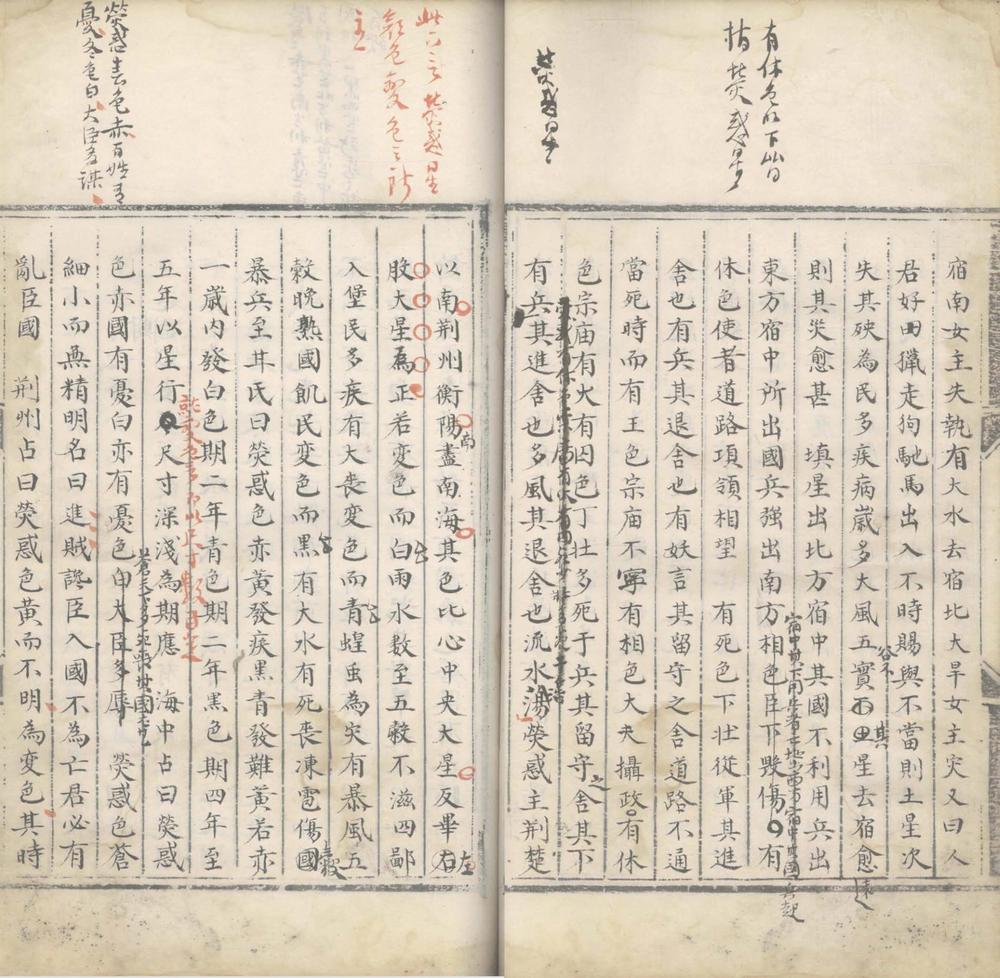 有休色以下此曰
指熒惑星
熒惑星
宿南女主失執有大水去宿北大旱女主灾又曰人
君好田獵走狗馳馬出入不時賜與不當則土星次
失其殃為民多疾病歲多大風五實不星去宿愈
則其災愈甚　填星出北方宿中其國不利用兵出
東方宿中所出國兵強出南方相色臣下毀傷有
休色使者道路項領相望　有死色下壮從軍其進
舍也有兵其退舍也有妖言其留守之舍道路不通
當死時而有王色宗庙不寧有相色大夫攝政有休
色宗庙有火有囚色丁壮多死于兵其留守舍其下
之
有兵其進舍也多風其退舍也流水湯熒惑主荆楚
此下言熒惑星
顏色變色之所
主
熒惑青色赤百姓有
憂冬色白大臣多謀
以南荆州衡陽盡南海其色比心中央大星反畢右
南
左
股大星為正若变色而白雨水数至五穀不滋四鄙
入堡民多疾有大丧变色而青蝗虫為灾有暴風五
穀晚熟國飢民变色而黒有大水有死丧凍雹傷國
穀
暴兵至甘氏曰熒惑色赤黃發疾黒青發難黃若赤
一歲内發白色期二年青色期二年黒色期四年至
五年以星行尺寸深淺為期應　海中占曰熒惑
色赤國有憂白亦有憂色白大臣多辱　熒惑色蒼
細小而無精明名曰進賊讒臣入國不為亡君必有
亂臣國　荆州占曰熒惑色黃而不明為变色其時